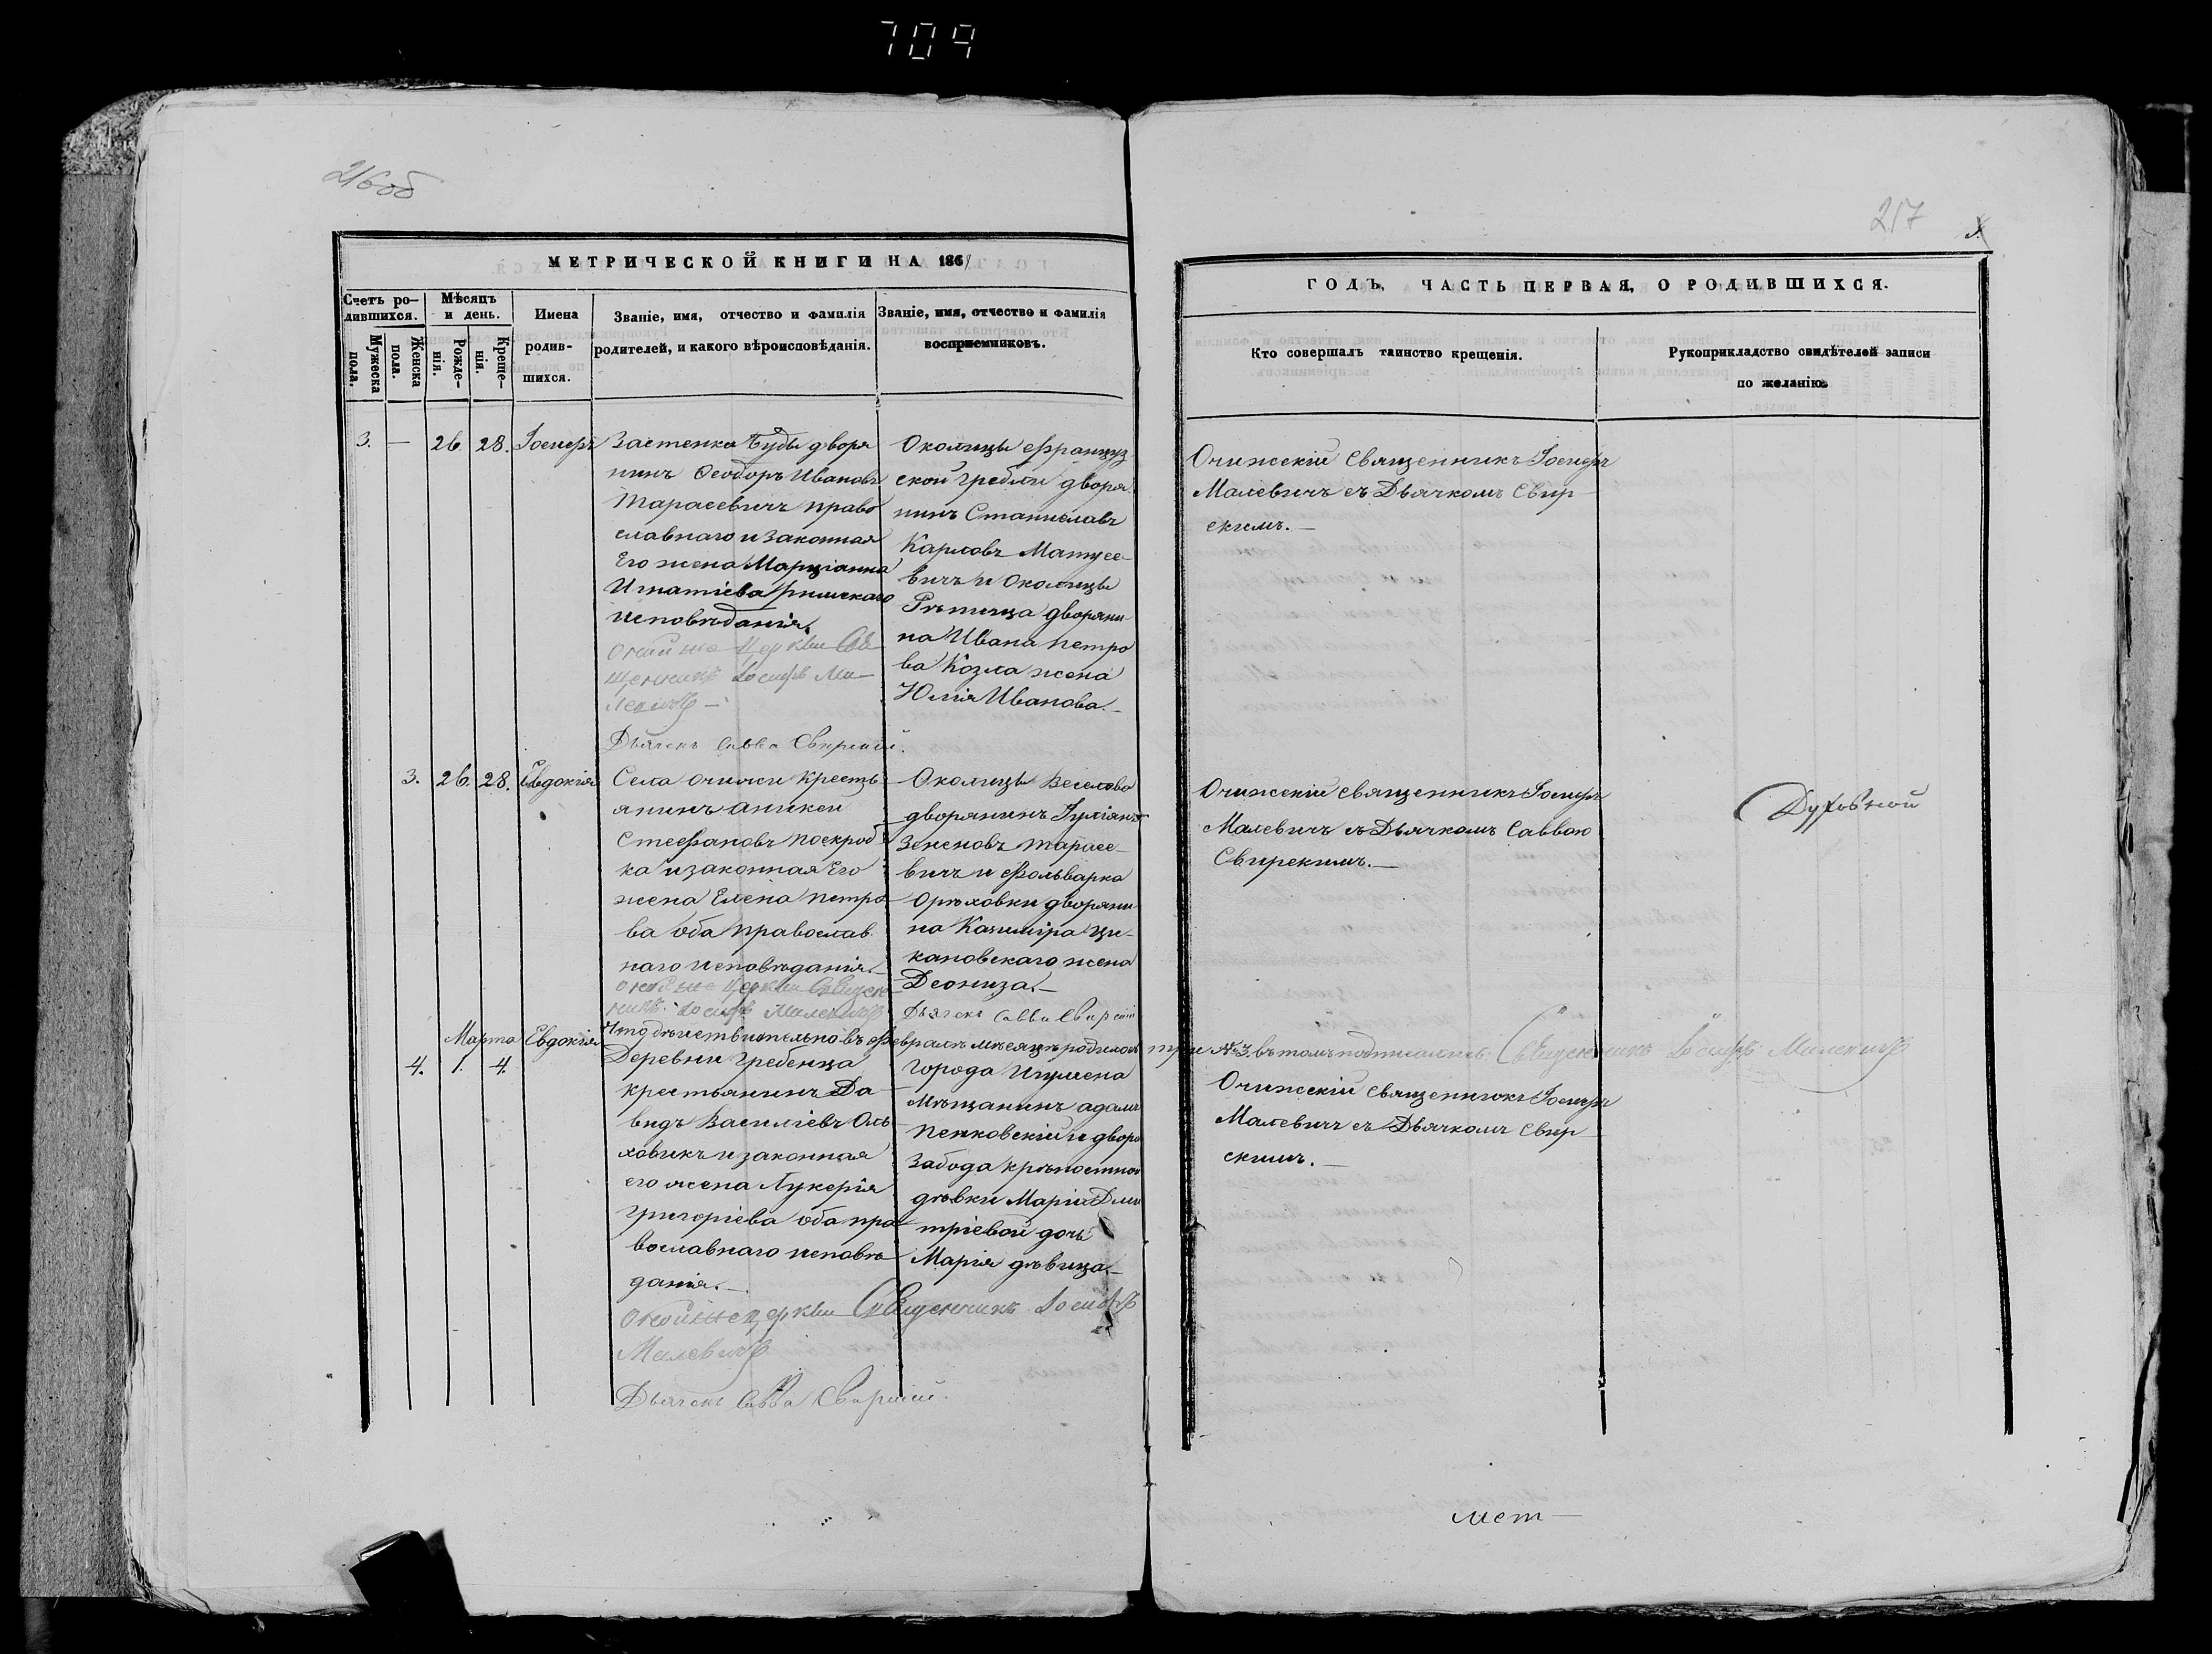 709
216об
217
МЕТРИЧЕСКОЙ КНИГИ НА 1861
Счетъ ро-
дившихся.
Мужеска
пола.
Женска
пола.
Мѣсяцъ
и день.
Рожде-
нія.
Креще-
нія.
Имена
родив-
шихся.
Званіе, имя, отчество и фамилія
родителей, и какого вѣроисповѣданія.
Званіе, имя, отчество и фамилія
воспріемниковъ.
ГОДЪ, ЧАСТЬ ПЕРВАЯ, О РОДИВШИХСЯ.
Кто совершалъ таинство крещенія.
Рукоприкладство свидѣтелей записи
по желанію.
3. — 26. 28. Іосифъ
Застенка Буды дворя
нинъ Ѳеодоръ Ивановъ
Тарасевичъ право
славнаго и законная
Его жена Марціанна
Игнатіева римскаго
исповѣданія.
Священникъ Іосифъ Ма-
левичъ —
Дьячекъ Савва Свирскій.
Околицы Француз
ской Гребли дворя
нинъ Станиславъ
Карловъ Матусе-
вичъ и Околицы
Рѣпища дворяни
на Ивана Петро
ва Козла жена
Юлія Иванова. —
Очижскій Священникъ Іосифъ
Малевичъ съ Дьячкомъ Свир
скимъ. —
3. 26. 28. Евдокія
Села Очижи Крестъ
янинъ Аникей
Стефановъ Поскроб
ка и законная Его
жена Елена Петро
ва оба Православ
наго исповѣданія. —
Церкви Священ
никъ Іосифъ Малевичъ
Околицы Веселово
дворянинъ Іуліанъ
Зеноновъ Тарасе-
вичъ и Фольварка
Орѣховки дворяни
на Казиміра Ци-
кановскаго жена
Деониза. —
Дьячекъ Савва Свирскій
Очижскій Священникъ Іосифъ
Малевичъ съ Дьячкомъ Саввою
Свирскимъ. —
Духовной
Что дѣйствительно въ Февралѣ мѣсяцѣ родилось три №3. въ томъ подписались. Священникъ Іосифъ Малевичъ
Марта Евдокія
4. 1. 4.
Деревни Гребенца
крестьянинъ Да
видъ Василіевъ Оль
ховикъ и законная
его жена Лукерія
Григоріева оба пра
вославнаго исповѣ
данія. —
Церкви Священникъ Іосифъ
Малевичъ
Дьячекъ Савва Свирскій.
Города Игумена
Мѣщанинъ Адамъ
Пенковскій и двора
Забода крѣпостной
дѣвки Маріи Дми
тріевой дочь
Марія дѣвица. —
Очижскій Священникъ Іосифъ
Малевичъ съ Дьячкомъ Свир
скимъ. —
мет —